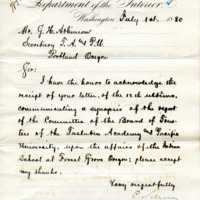 Department of the Interior
Washington July 1st. 1880
Mr. G. H. Atkinson
Secretary T. A. and P. U.
Portland Oregon
Sir:
I have the honor to acknowledge the
receipt of your letter, of the 12th ultimo,
communicating a synopsis of the report
of the Committee of the Board of Trus-
tees of the Tualatin Academy and Pacific
University, upon the affairs of the Indian
School at Forest Grove Oregon; please accept
my thanks.
Very respectfully